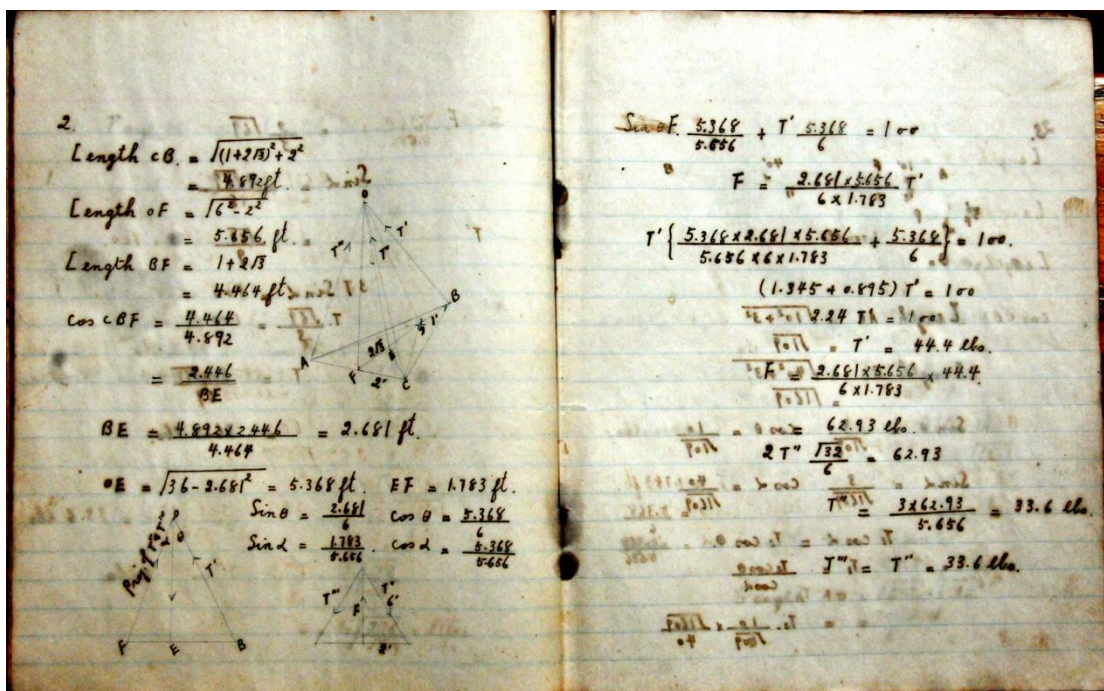 2.
Length CB. = √((1+2√3)² + 2²)
= 4.892 ft.
Length OF = √(6² - 2²)
= 5.656 ft.
Length BF = 1 + 2√3
= 4.464 ft
cos CBF = 4.464/4.892
= 2.446/BE
BE = 4.892×2.446/4.464 = 2.681 ft.
OE = √(36 - 2.681²) = 5.368 ft. EF = 1.783 ft.
Sin θ = 2.681/6 cos θ = 5.368/6
Sin α = 1.783/5.656 cos α = 5.368/5.656
O
T'
T''
T'
B
1'
A
2√3
F
2'
E
C
O
α θ
Proj. of
T'
F E B
T'''
T''
F
6'
2'
Sin θ F. 5.368/5.656 + T' 5.368/6 = 100
F = 2.681×5.656/6×1.783 T'
T' {5.368×2.681×5.656/5.656×6×1.783 + 5.368/6} = 100.
(1.345 + 0.895) T' = 100
2.24 T' = 100
T' = 44.4 lbs.
F = 2.681×5.656/6×1.783 × 44.4
= 62.93 lbs.
2T'' √32/6 = 62.93
T'' = 3×62.93/5.656 = 33.6 lbs.
T''' = T'' = 33.6 lbs.